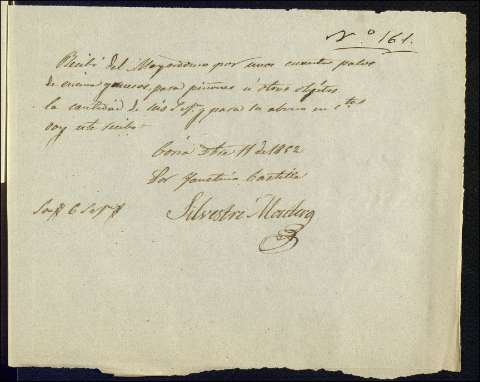 N.º 161.
Recibí del Mayordomo por unos cuantos palos
de encina gruesos, para piñones ú otros objetos
la cantidad de seis y para su abono en
doy este recibo
Coria 11 de 1852
Por Faustino Castilla
Silvestre
Son 6